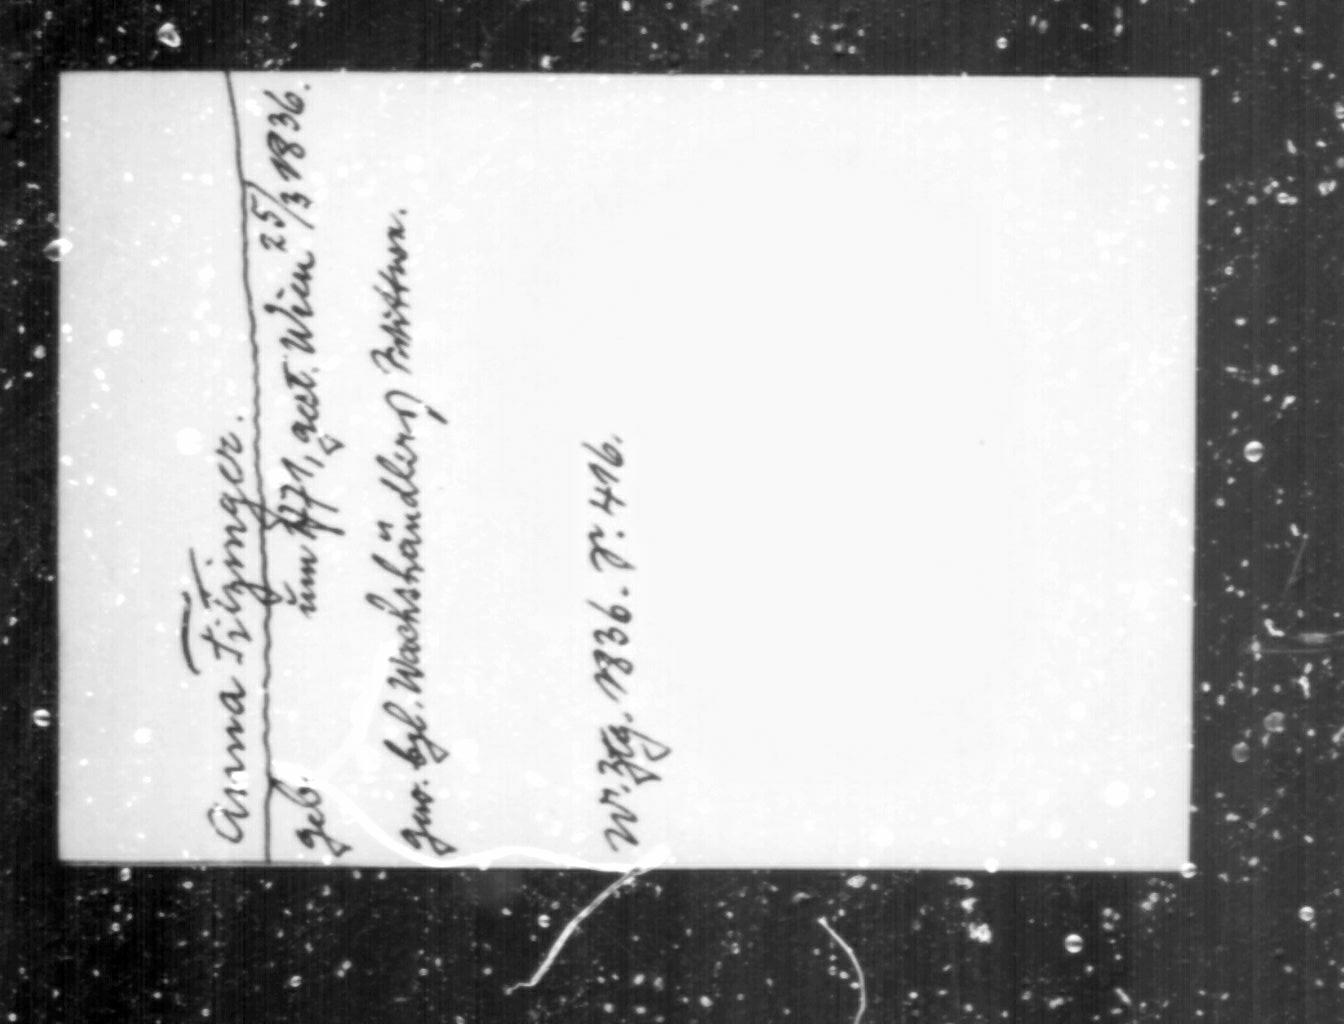 Anna Fitzinger.
geb. um 1771, gest. Wien 25/3 1836.
gew. bgl. Wachshändlers Wittwe.
W. Ztg. 1836. S. 416.